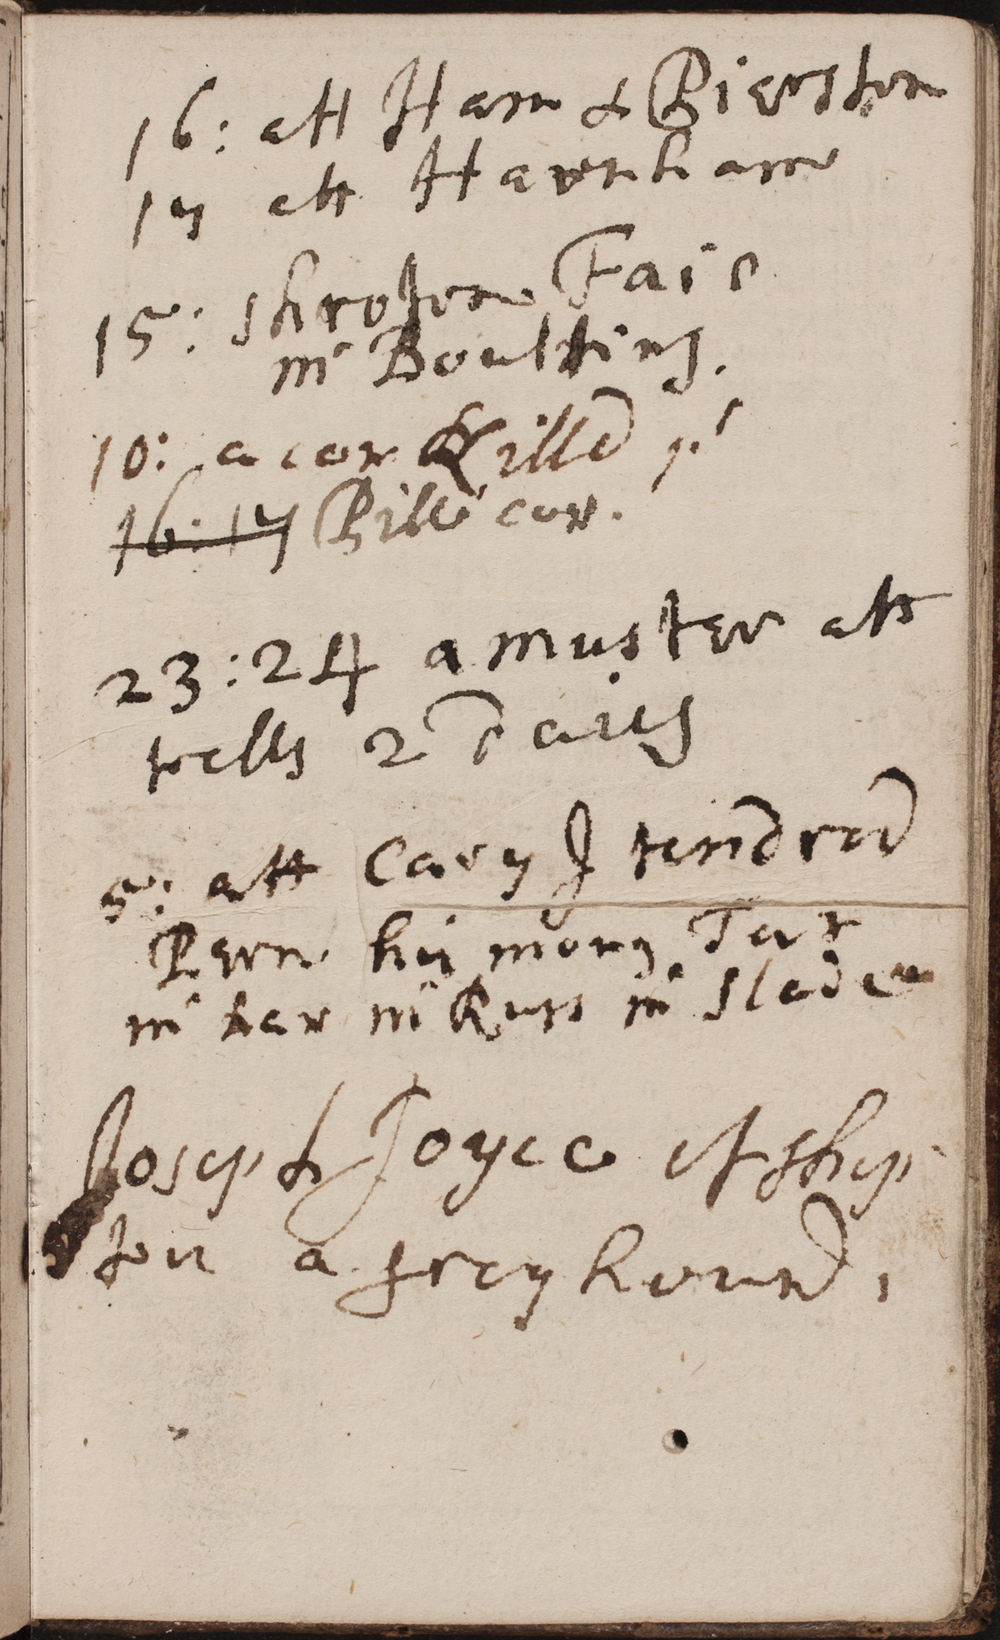 16: att Ham & Pierston
17 att Harnham
15: shroton Fair
mr Boulting.
10: a cow Killd
16: 17 Bille cow.
23:24 a muster att
wells 2 Dais
5: att Cary I tendred
Pern his mony
mr mr Russ mr Slade
Joseph Joyce att Shep
ton a greyhound,